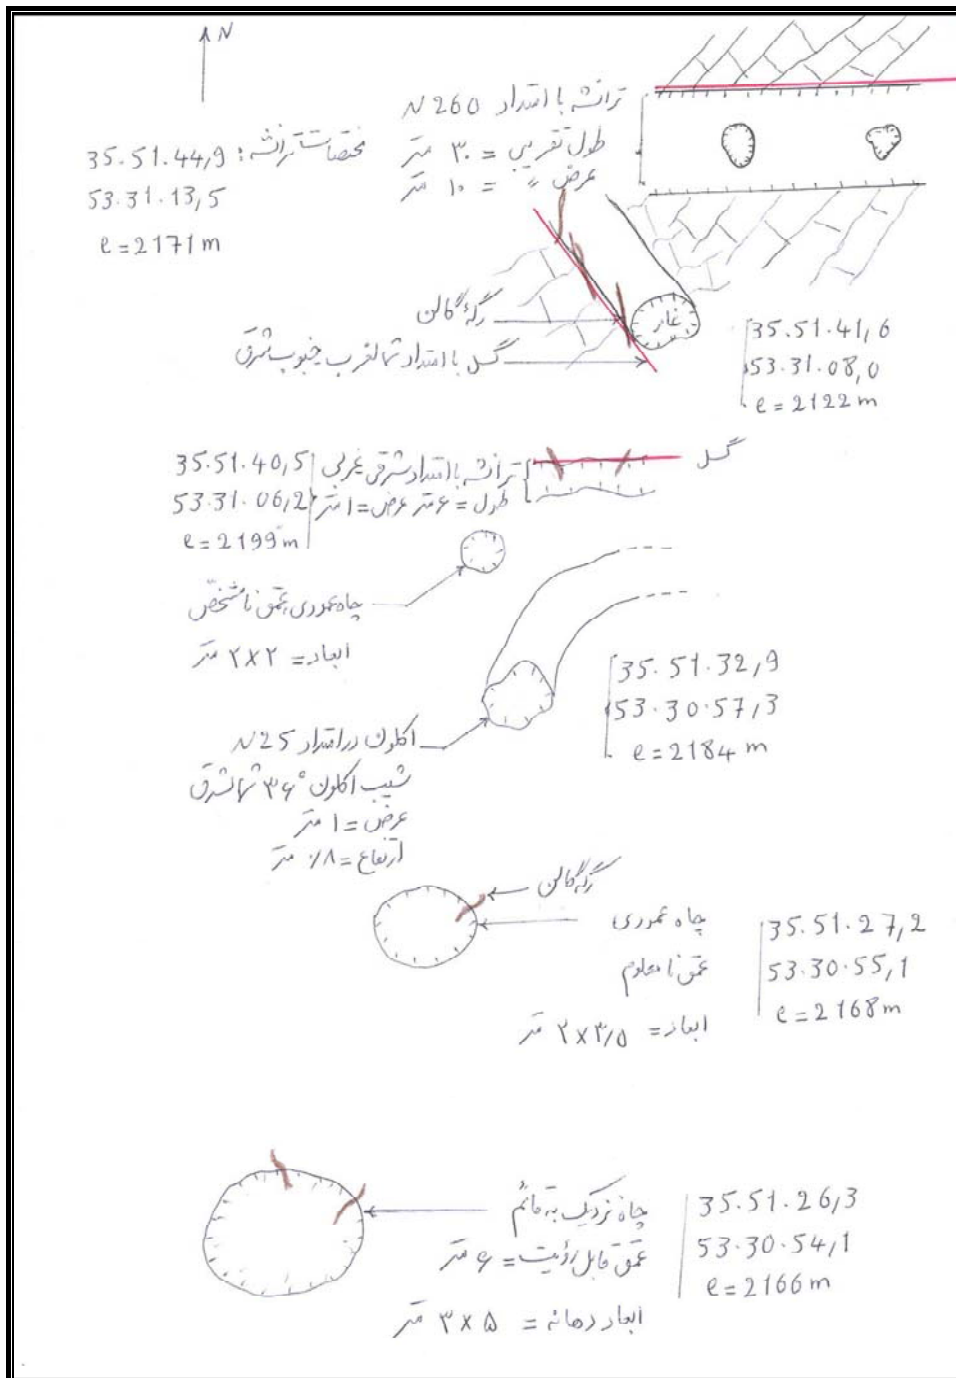 N
ترانشه با امتداد N260
طول تقریبی = ۳۰ متر
عرض " = ۱۰ متر
مختصات ترانشه:
35.51.44,9
53.31.13,5
e=2171m
رگهٔ گالن
غار
گسل با امتداد شمالغرب جنوب شرق
35.51.41,6
53.31.08,0
e=2122m
گسل
ترانشه با امتداد شرقی غربی
طول = ۶ متر عرض = ۱ متر
35.51.40,5
53.31.06,2
e=2199m
چاه عمودی، عمق نامشخص
ابعاد = ۲x۲ متر
35.51.32,9
53.30.57,3
e=2184m
اکلون در امتداد N25
شیب اکلون ۳۶° شمالشرق
عرض = ۱ متر
ارتفاع = ۸/ متر
رگه گالن
چاه عمودی
عمق نامعلوم
ابعاد = ۲x۳/۵ متر
35.51.27,2
53.30.55,1
e=2168m
چاه نزدیک به قائم
عمق قابل رؤیت = ۶ متر
ابعاد دهانه = ۳x۵ متر
35.51.26,3
53.30.54,1
e=2166m